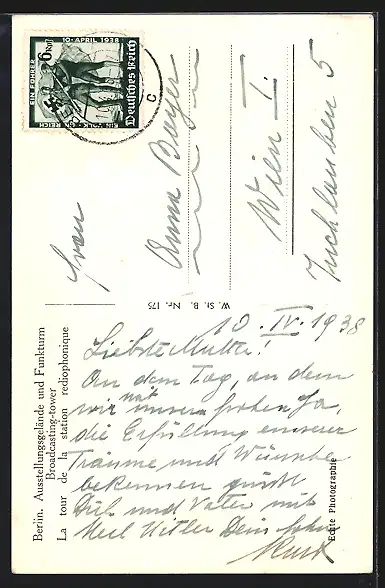 Berlin. Ausstellungsgelände und Funkturm
Broadcasting-tower
La tour de la station rediophonique
10. IV. 1938
Liebste Mutter!
An dem Tag, an dem
wir mit unserm frohen Ja,
die Erfüllung unserer
Träume und Wünsche
bekennen grüßt
Dich und Vater mit
Heil Hitler Dein Sohn
Kurt
Echte Photographie
W. St. B. Nr. 175
10. APRIL 1938
EIN VOLK
EIN REICH
EIN FÜHRER
6 Rpf
Deutsches Reich
C
Frau
Anna Bayer
Wien I.
Tuchlauben 5